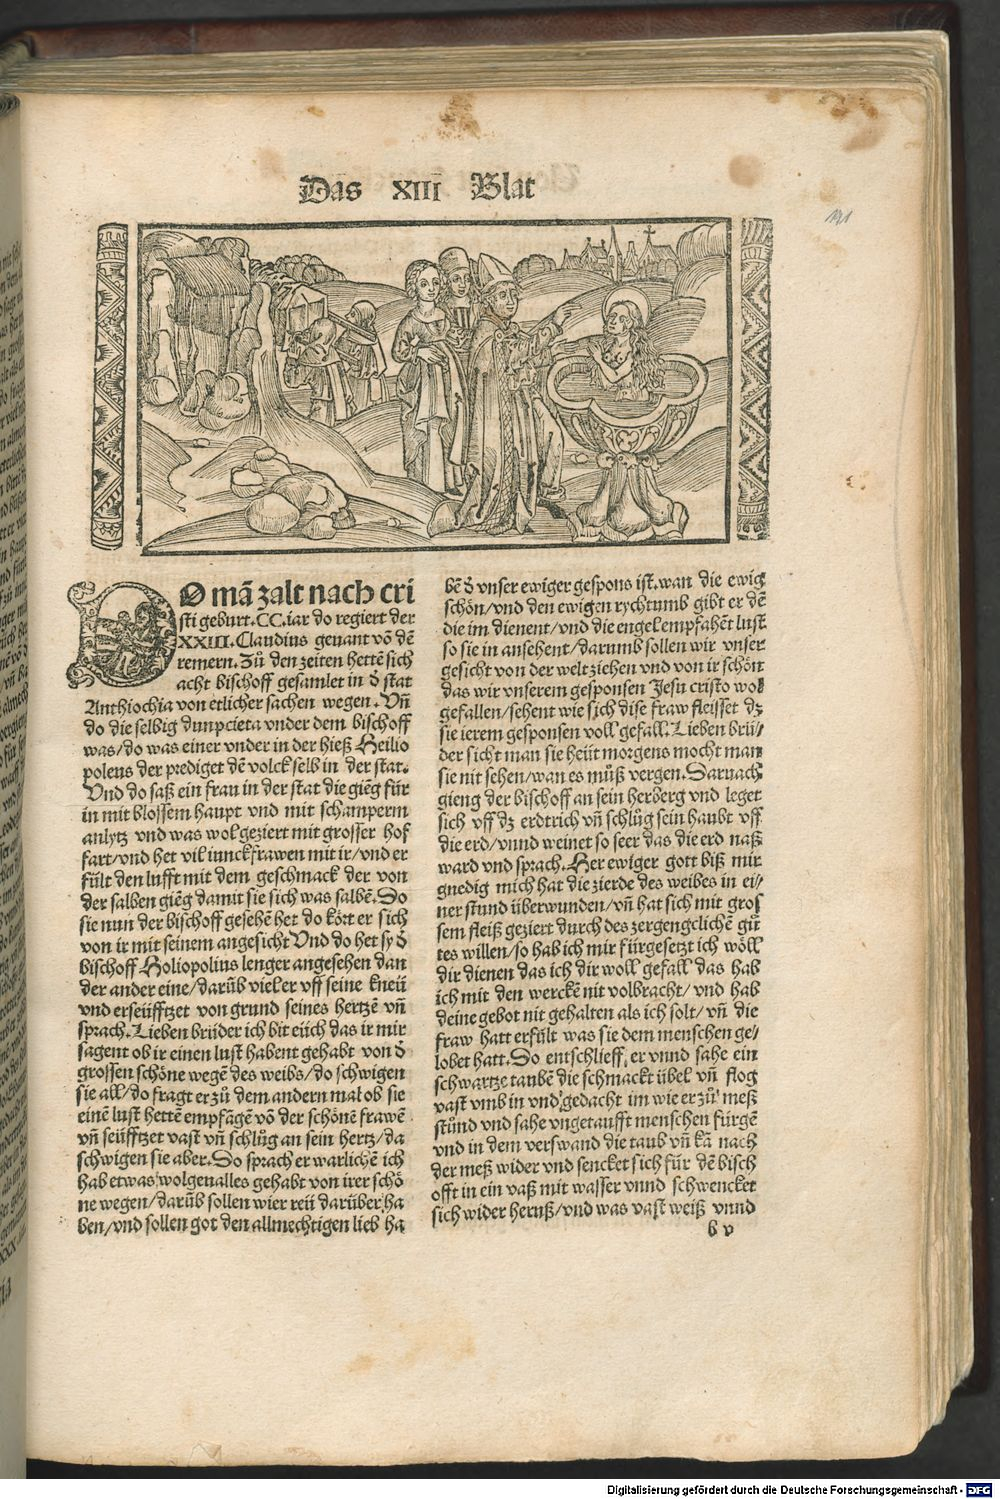 Das XIII Blat
191
DO mā zalt nach cri
sti geburt. CC. iar do regiert der
XXIII. Claudius genant vō dē
remern. Zů den zeiten hettē sich
acht bischoff gesamlet in d̄ stat
Anthiochia von etlicher sachen wegen. Vn̄
do die selbig dunpcieta vnder dem bischoff
was/do was einer vnder in der hieß Heilio
polens der prediget dē volck selb in der stat.
Vnd do saß ein frau in der stat die giēg für
in mit blossem haupt vnd mit schamperm
anlytz vnd was wol geziert mit grosser hof
fart/vnd het vil iunckfrawen mit ir/vnd er
fült den lufft mit dem geschmack der von
der salben giēg damit sie sich was salbē. So
sie nun der bischoff gesehē het do kört er sich
von ir mit seinem angesicht Vnd do het sy d̄
bischoff Holiopolius lenger angesehen dan
der ander eine/darūb viel er vff seine kneü
vnd erseüfftzet von grund seines hertzē vn̄
sprach. Lieben brüder ich bit eüch das ir mir
sagent ob ir einen lust habent gehabt von d̄
grossen schöne wegē des weibs/do schwigen
sie all/do fragt er zů dem andern mal ob sie
einē lust hettē empfāgē vō der schönē frawē
vn̄ seüfftzet vast vn̄ schlůg an sein hertz/da
schwigen sie aber. So sprach er warlichē ich
hab etwas wolgenalles gehabt von irer schö
ne wegen/darūb sollen wier reü darüber ha
ben/vnd sollen got den allmechtigen lieb ha
bē d̄ vnser ewiger gespons ist. wan die ewig
schön/vnd den ewigen rychtumb gibt er dē
die im dienent/vnd die engel empfahēt lust
so sie in ansehent/darumb sollen wir vnser
gesicht von der welt ziehen vnd von ir schönt
das wir vnserem gesponsen Jesu cristo wol
gefallen/sehent wie sich dise fraw fleisset dz
sie ierem gesponsen voll gefall. Lieben brü/
der sicht man sie heüt morgens mocht man
sie nit sehen/wan es můß vergen. Darnach
gieng der bischoff an sein herberg vnd leget
sich vff dz erdtrich vn̄ schlůg sein haubt vff
die erd/vnnd weinet so seer das die erd naß
ward vnd sprach. Her ewiger gott biß mir
gnedig mich hat die zierde des weibes in ei/
ner stund überwunden/vn̄ hat sich mit gros
sem fleiß geziert durch des zergengclichē gů
tes willen/so hab ich mir fürgesetzt ich wöll
dir dienen das ich dir woll gefall das hab
ich mit den werckē nit volbracht/vnd hab
deine gebot nit gehalten als ich solt/vn̄ die
fraw hatt erfült was sie dem menschen ge/
lobet hatt. So entschlieff er vnnd sahe ein
schwartze taubē die schmackt übel vn̄ flog
vast vmb in vnd gedacht im wie er zů meß
stůnd vnd sahe vngetaufft menschen fürgē
vnd in dem verswand die taub vn̄ kā nach
der meß wider vnd sencket sich für dē bisch
offt in ein vaß mit wasser vnnd schwencket
sich wider heruß/vnd was vast weiß vnnd
b v
Digitalisierung gefördert durch die Deutsche Forschungsgemeinschaft - DFG